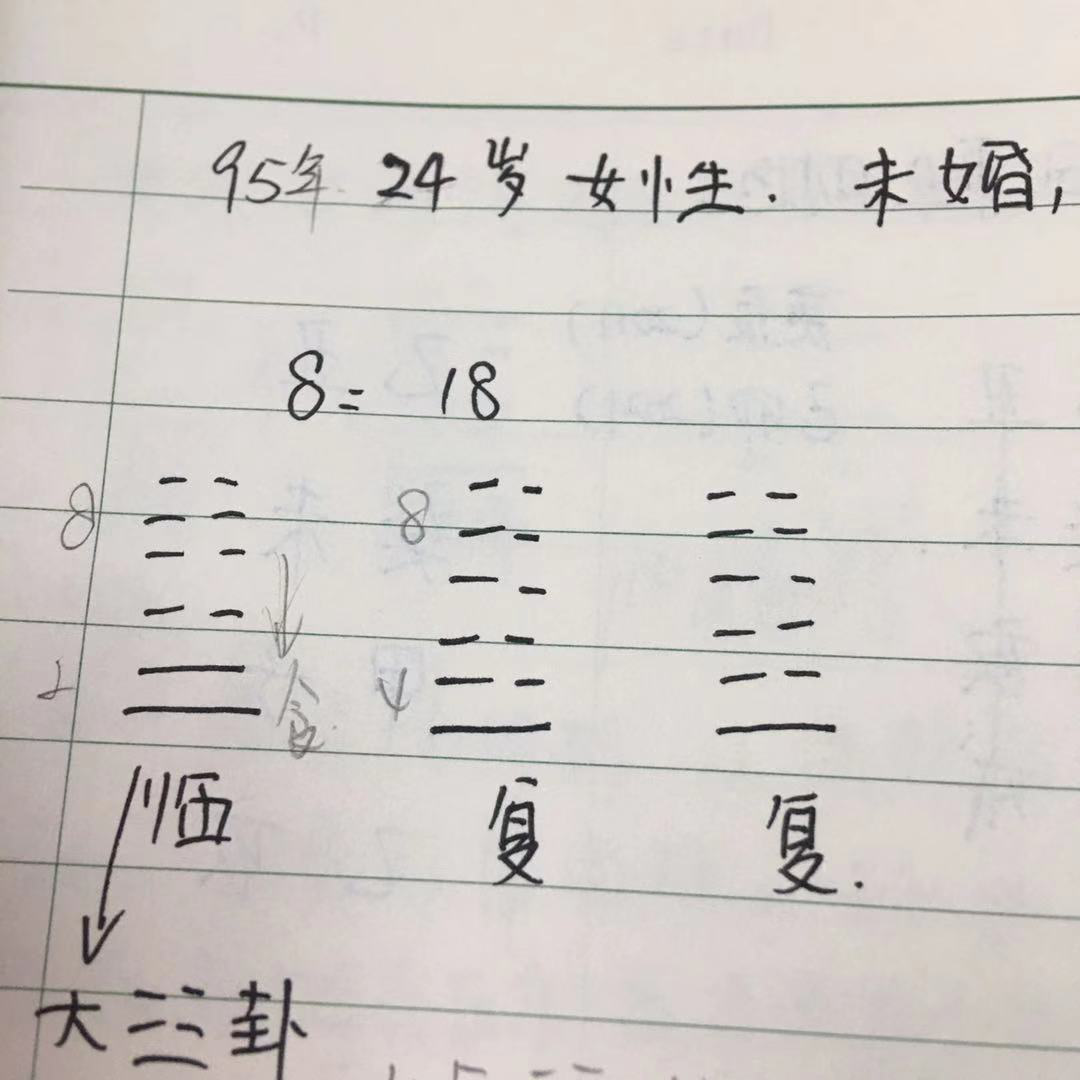 95年 24岁 女性. 未婚,
8= 18
8 8
2 4
临 复 复.
大☳卦